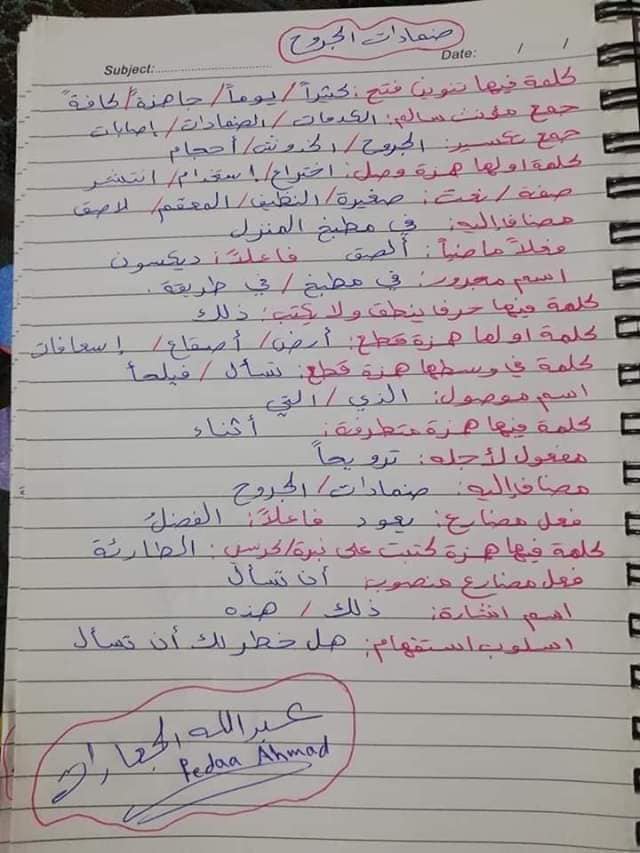 ضمادات الجروح
Subject:
Date: / /
كلمة فيها تنوين فتح: كثيراً / يوماً / جاهزة / كافةً
جمع مؤنث سالم: الكدمات / الضمادات / إصابات
جمع تكسير: الجروح / الخدوش / أحجام
كلمة اولها همزة وصل: اختراع / استخدام / انتشر
صفة / نعت: صغيرة / النظيف / المعقم / لاصق
مضاف إليه: في مطبخ المنزل
فعلاً ماضياً: ألصق فاعلاً: ديكسون
اسم مجرور: في مطبخ / في طريقة
كلمة فيها حرفا ينطق ولا يكتب: ذلك
كلمة اولها همزة قطع: أرض / أصقاع / إسعافات
كلمة في وسطها همزة قطع: تسأل / فيلجأ
اسم موصول: الذي / التي
كلمة فيها همزة متطرفة: أثناء
مفعول لأجله: ترويحاً
مضاف إليه: ضمادات / الجروح
فعل مضارع: يعود فاعلاً: الفضلُ
كلمة فيها همزة كتبت على نبرة / كرسي: الطارئة
فعل مضارع منصوب: أن تسأل
اسم اشارة: ذلك / هذه
اسلوب استفهام: هل خطر لك أن تسأل
عبدالله الجعارات
Pedaa Ahmad